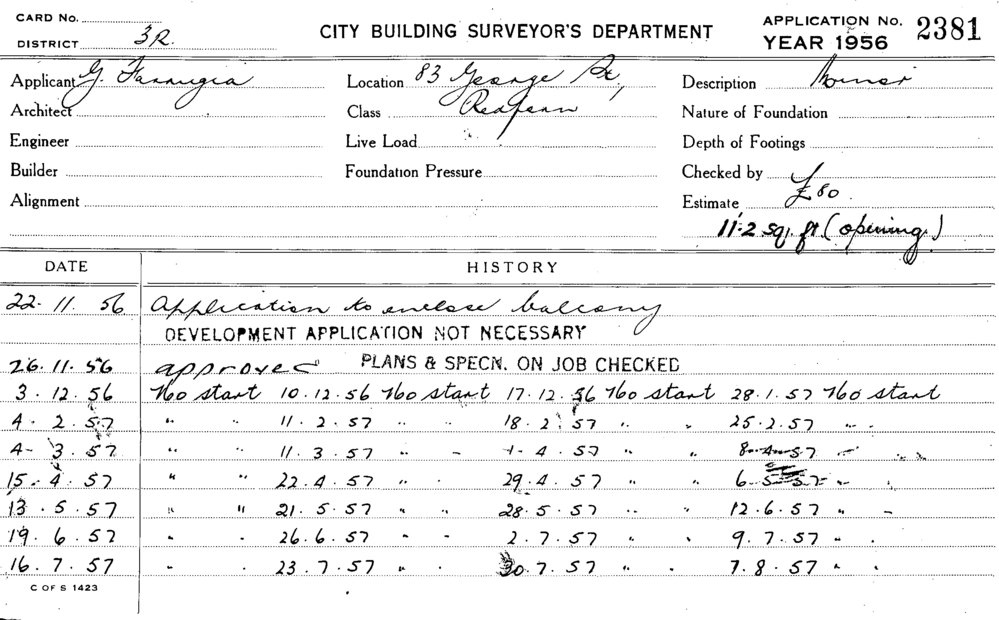 CARD No.
DISTRICT 3R.
CITY BUILDING SURVEYOR'S DEPARTMENT
APPLICATION No. 2381
YEAR 1956
Applicant G. Farrugia Location 83 George St, Description Minor
Architect Class Redfern Nature of Foundation
Engineer Live Load Depth of Footings
Builder Foundation Pressure Checked by
Alignment Estimate £80
11.2 sq. ft (opening)
DATE HISTORY
22. 11. 56 Application to enclose balcony
DEVELOPMENT APPLICATION NOT NECESSARY
26.11.56 approved PLANS & SPECN. ON JOB CHECKED
3. 12. 56 No start 10.12.56 No start 17.12.56 No start 28.1.57 No start
4. 2. 57 " " 11.2.57 " " 18.2.57 " " 25.2.57 " "
4. 3. 57 " " 11.3.57 " " 1.4.57 " " 8.4.57 " "
15. 4. 57 " " 22.4.57 " " 29.4.57 " " 6.5.57 " "
13. 5. 57 " " 21.5.57 " " 28.5.57 " " 12.6.57 " "
19. 6. 57 " " 26.6.57 " " 2.7.57 " " 9.7.57 " "
16. 7. 57 " " 23.7.57 " " 30.7.57 " " 7.8.57 " "
C OF S 1423